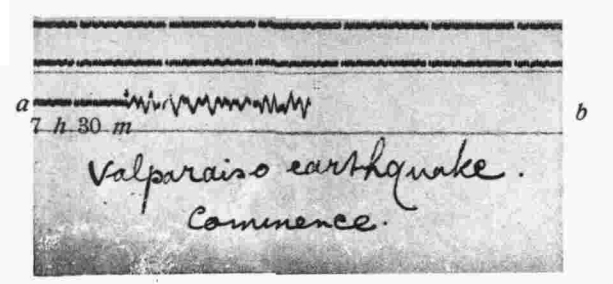 a b
7 h 30 m
Valparaiso earthquake.
Commence.